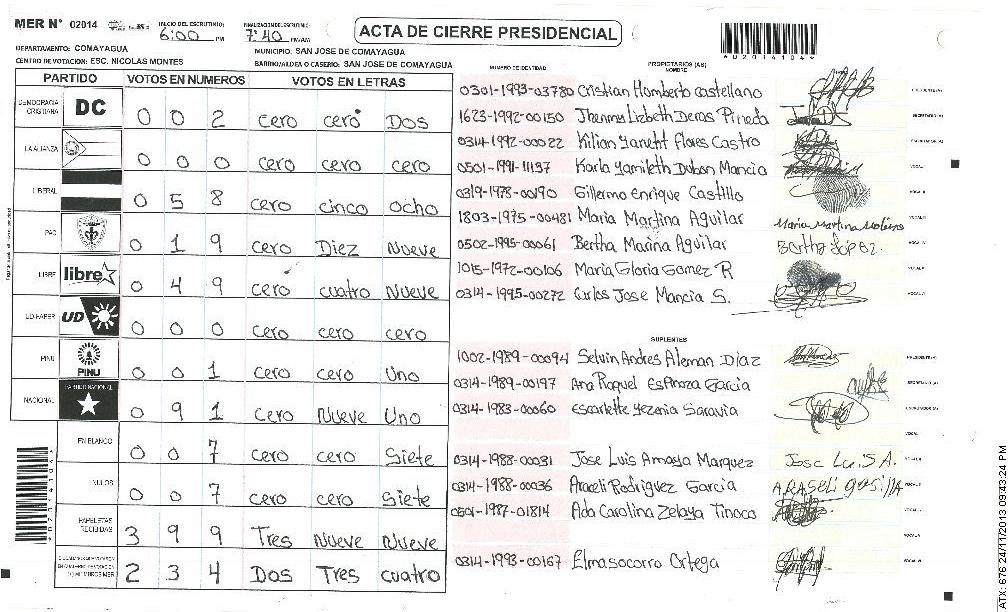 MER N° 02014
INICIO DEL ESCRUTINIO: 6:00 PM
FINALIZACION DEL ESCRUTINIO: 7:40 PM/AM
ACTA DE CIERRE PRESIDENCIAL
*02014104*
DEPARTAMENTO: COMAYAGUA
MUNICIPIO: SAN JOSE DE COMAYAGUA
CENTRO DE VOTACION: ESC. NICOLAS MONTES
BARRIO/ALDEA O CASERIO: SAN JOSE DE COMAYAGUA
PARTIDO VOTOS EN NUMEROS VOTOS EN LETRAS
DEMOCRACIA CRISTIANA DC 0 0 2 cero cero Dos
LA ALIANZA 0 0 0 cero cero cero
LIBERAL 0 5 8 cero cinco ocho
PAC 0 1 9 cero Diez Nueve
LIBRE libre 0 4 9 cero cuatro Nueve
UD-FAPER UD 0 0 0 cero cero cero
PINU PINU 0 0 1 cero cero Uno
NACIONAL PARTIDO NACIONAL 0 9 1 cero Nueve Uno
EN BLANCO 0 0 7 cero cero Siete
NULOS 0 0 7 cero cero Siete
PAPELETAS RECIBIDAS 3 9 9 Tres Nueve Nueve
2 3 4 Dos Tres cuatro
NUMERO DE IDENTIDAD PROPIETARIOS (AS) NOMBRE
0301-1993-03780 Cristian Homberto castellano PRESIDENTE(A)
1623-1992-00150 Jhenmy Lizbeth Deras Pineda SECRETARIO(A)
0314-1992-00022 Kilian Yaneht Flores Castro ESCRUTADOR(A)
0501-1991-11137 Karla Yamileth Dubon Mancia VOCAL I
0319-1978-00190 Gillermo Enrique Castillo VOCAL II
1803-1975-00481 Maria Martina Aguilar Maria Martina Molina VOCAL III
0502-1995-00061 Bertha Marina Aguilar Bertha López VOCAL IV
1015-1972-00106 Maria Gloria Gomez R VOCAL V
0314-1995-00272 Carlos Jose Mancia S. VOCAL VI
SUPLENTES
1002-1989-00094 Selvin Andres Aleman Díaz PRESIDENTE(A)
0314-1989-00197 Ana Raquel Esfinoza Garcia SECRETARIO(A)
0314-1983-00060 Escarlette Yezenia Saravia ESCRUTADOR (A)
VOCAL I
0314-1988-00031 Jose Luis Amaya Marquez Jose Luis A. VOCAL II
0314-1988-00036 Araceli Rodriguez Garcia VOCAL III
0501-1987-01814 Ada Carolina Zelaya Tinoco VOCAL IV
VOCAL V
0314-1993-00167 Elmasocorro Ortega VOCAL VI
*02014104*
ATX 676 24/11/2013 09:43:24 PM